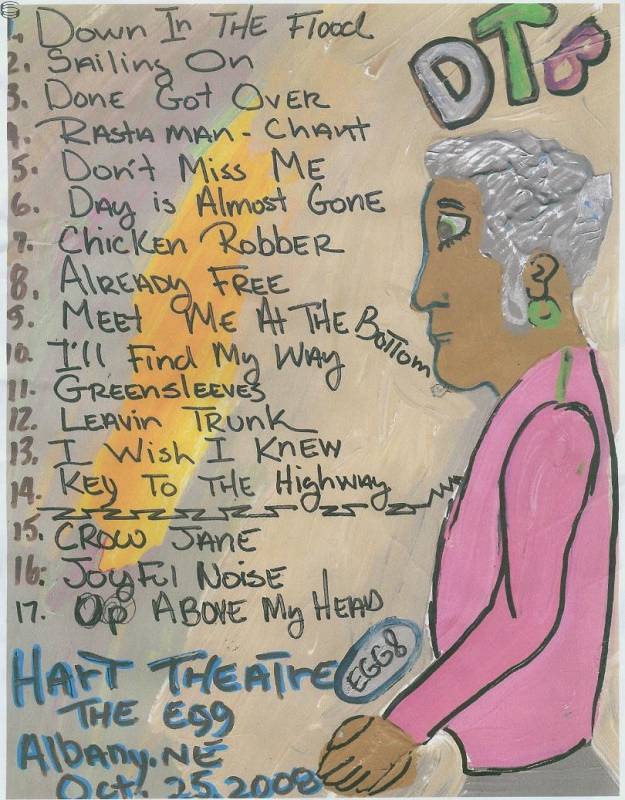 DTB
1. Down In The Flood
2. Sailing On
3. Done Got Over
4. Rasta man - Chant
5. Don't Miss Me
6. Day is Almost Gone
7. Chicken Robber
8. Already Free
9. Meet Me At The Bottom
10. I'll Find My Way
11. Greensleeves
12. Leavin Trunk
13. I Wish I Knew
14. Key To The Highway
15. Crow Jane
16. Joyful Noise
17. Up Above My Head
Hart Theatre
EGG8
The Egg
Albany.NE
Oct. 25.2008